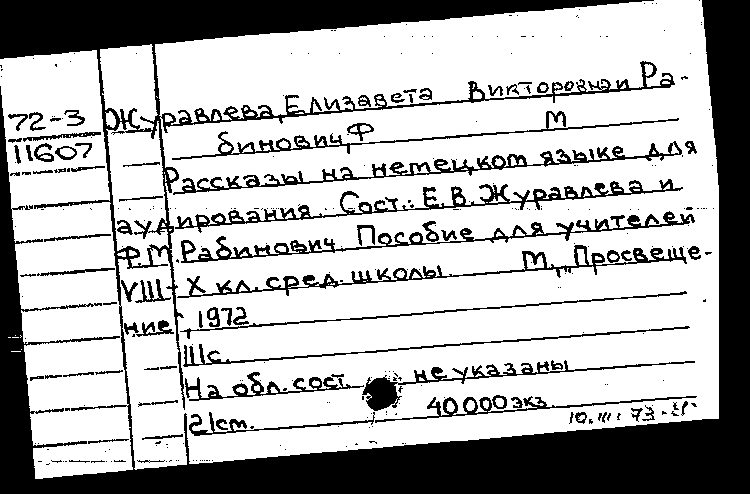 72-3 Журавлева, Елизавета Викторовна и Ра-
11607 бинович, Ф М
Рассказы на немецком языке для
аудирования. Сост.: Е.В. Журавлева и
Ф.М. Рабинович. Пособие для учителей
VIII-X кл. сред. школы. М., "Просвеще-
ние", 1972.
111с.
На обл. сост. не указаны
21см. 40000экз
10.III.73